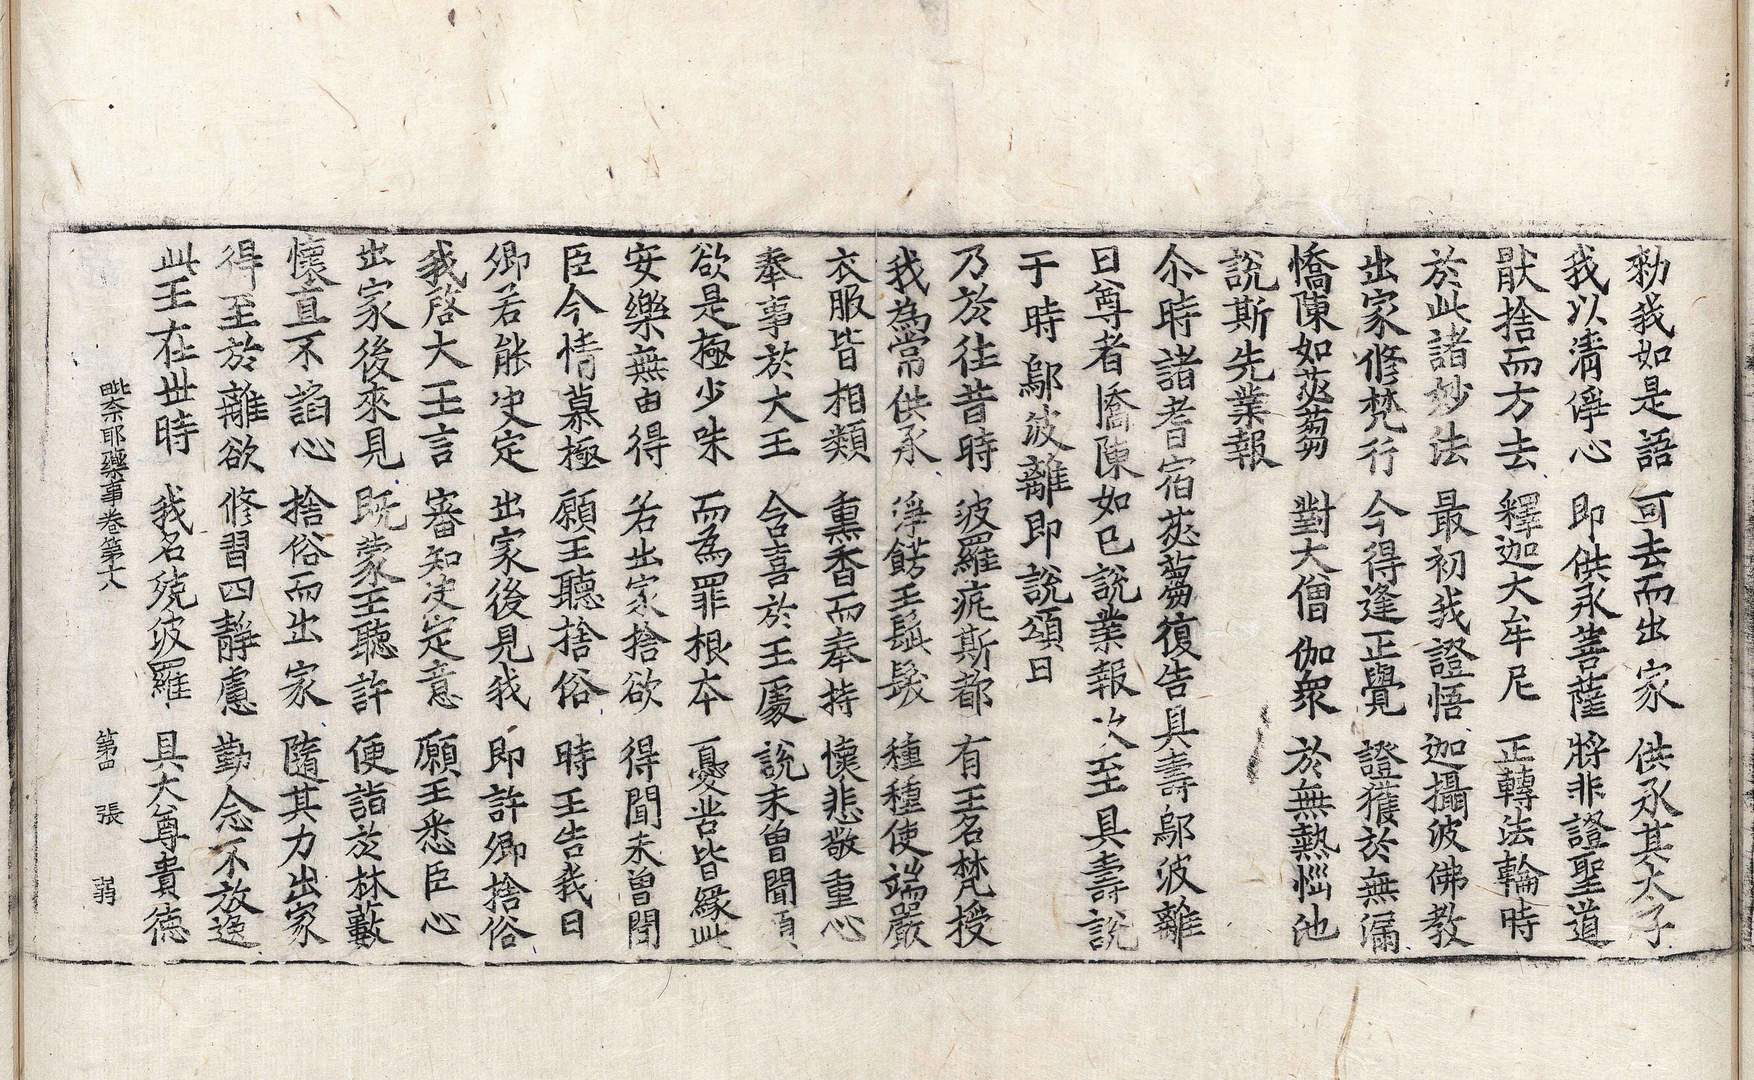 勑我如是語 可去而出家 供承其太子
我以清淨心 即供承菩薩 將非證聖道
猒捨而方去 釋迦大牟尼 正轉法輪時
於此諸妙法 最初我證悟 迦攝波佛教
出家修梵行 今得逢正覺 證獲於無漏
憍陳如苾蒭 對大僧伽衆 於無熱惱池
說斯先業報
尒時諸耆宿苾蒭復告具壽鄔波離
曰尊者憍陳如已說業報次至具壽說
于時鄔波離即說頌曰
乃於往昔時 波羅痆斯都 有王名梵授
我為常供承 淨餝王鬚髮 種種使端嚴
衣服皆相類 熏香而奉持 懷悲敬重心
奉事於大王 含喜於王處 說未曾聞頌
欲是極少味 而為罪根本 憂苦皆緣此
安樂無由得 若出家捨欲 得聞未曾聞
臣今情慕極 願王聽捨俗 時王告我曰
卿若能决定 出家後見我 即許卿捨俗
我啓大王言 審知决定意 願王悉臣心
出家後來見 既蒙王聽許 便詣於林藪
懷直不諂心 捨俗而出家 隨其力出家
得至於離欲 修習四靜慮 勤念不放逸
此王在世時 我名殑彼羅 具大尊貴德
毗奈耶藥事卷第十八 第四 張 弱